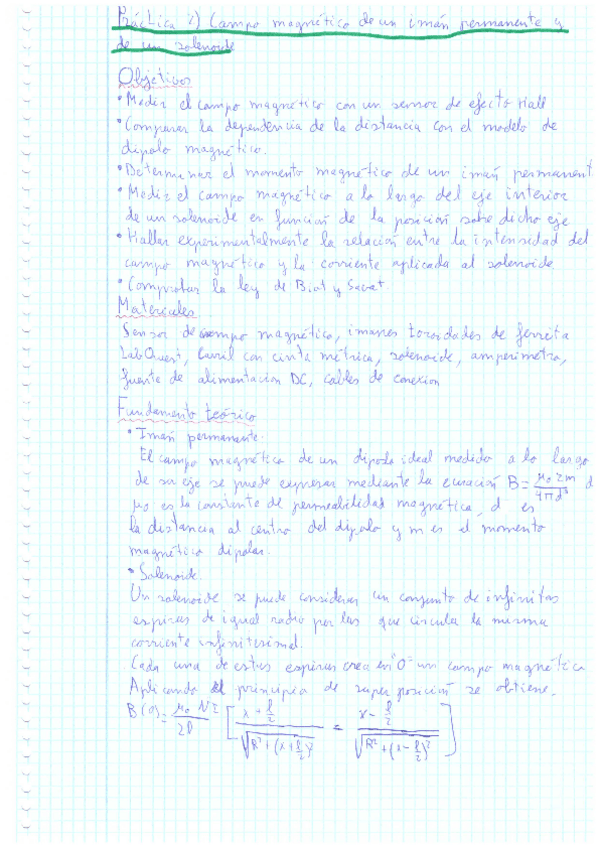 Práctica 2) Campo magnético de un imán permanente y
de un solenoide
Objetivos
• Medir el campo magnético con un sensor de efecto Hall
• Comparar la dependencia de la distancia con el modelo de
dipolo magnético.
• Determinar el momento magnético de un imán permanent
• Medir el campo magnético a lo largo del eje interior
de un solenoide en función de la posición sobre dicho eje
• Hallar experimentalmente la relación entre la intensidad del
campo magnético y la corriente aplicada al solenoide
• Comprobar la ley de Biot y Savat
Materiales
Sensor de campo magnético, imanes toroidades de ferrita
LabQuest, Carril con cinta métrica, solenoide, amperimetro,
fuente de alimentacion DC, cables de conexion
Fundamento teórico
• Imán permanente.
El campo magnético de un dipolo ideal medido a lo largo
de su eje se puede expresar mediante la ecuación B = μ₀ 2m / 4π d³ d
μ₀ es la constante de permeabilidad magnética, d es
la distancia al centro del dipolo y m es el momento
magnético dipolar.
• Solenoide.
Un solenoide se puede considerar un conjunto de infinitas
espiras de igual radio por las que circula la misma
corriente infinitesimal.
Cada una de estas espiras crea en "O" un campo magnético
Aplicando el principio de superposición se obtiene.
B(0) = μ₀ N I / 2ℓ [ (x + ℓ/2) / √(R² + (x + ℓ/2)²) = (x - ℓ/2) / √(R² + (x - ℓ/2)²) ]